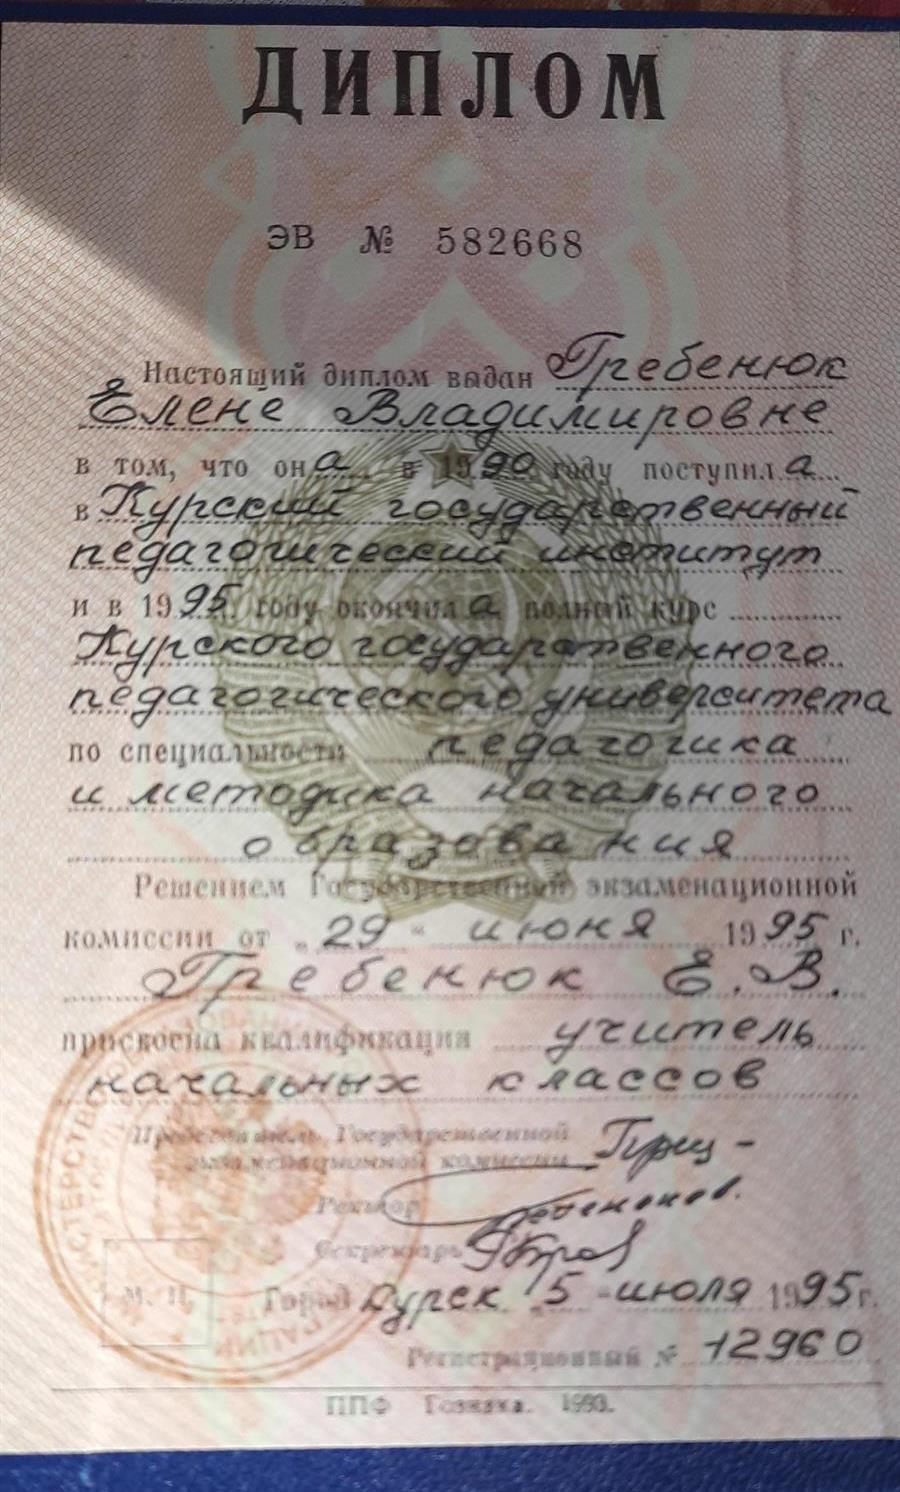 ДИПЛОМ
ЭВ № 582668
Настоящий диплом выдан Гребенюк
Елене Владимировне
в том, что она в 1990 году поступила
в Курский государственный
педагогический институт
и в 1995 году окончила полный курс
Курского государственного
педагогического университета
по специальности педагогика
и методика начального
образования
Решением Государственной экзаменационной
комиссии от „29“ июня 1995 г.
Гребенюк Е.В.
присвоена квалификация учитель
начальных классов
Председатель Государственной
экзаменационной комиссии
Ректор
Секретарь
М. П.
Город Курск „5“ июля 1995 г.
Регистрационный № 12960
ППФ Гознака. 1993.